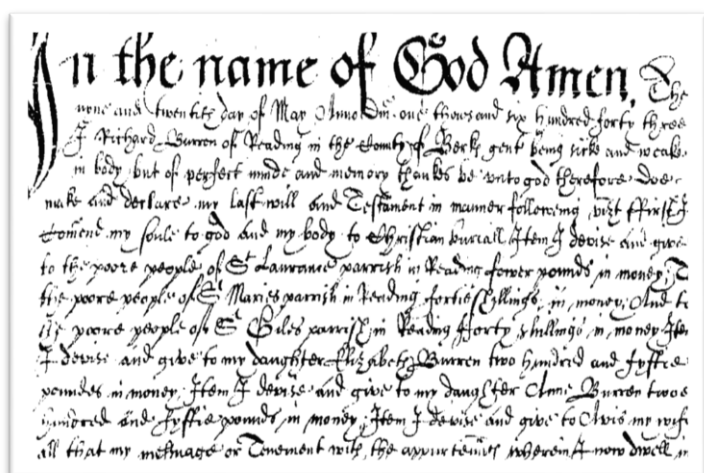 In the name of God Amen. The
nyne and twentith day of May Anno Dm one thousand six hundred forty three
I Richard Burren of Reading in the County of Berks gent being sicke and weake
in body but of perfect minde and memory thankes be unto god therefore doe
make and declare my last will and Testament in manner following vizt ffirst I
Comend my soule to god and my body to Christian buriall Item I devise and give
to the poore people of St Laurance parrish in Reading fower pounds in money; T
the poore people of St Maries parrish in Reading fortie shillings in money; And to
the poore people of St Giles parrish in Reading fforty shillings in money Item
I devise and give to my daughter Elizabeth Burren two hundred and fyftie
poundes in money; Item I devise and give to my daughter Anne Burren twoe
hundred and fyftie pounds in money; Item I devise and give to Avis my wife
all that my messuage or Tenement with the appurtennces wherein I now dwell in